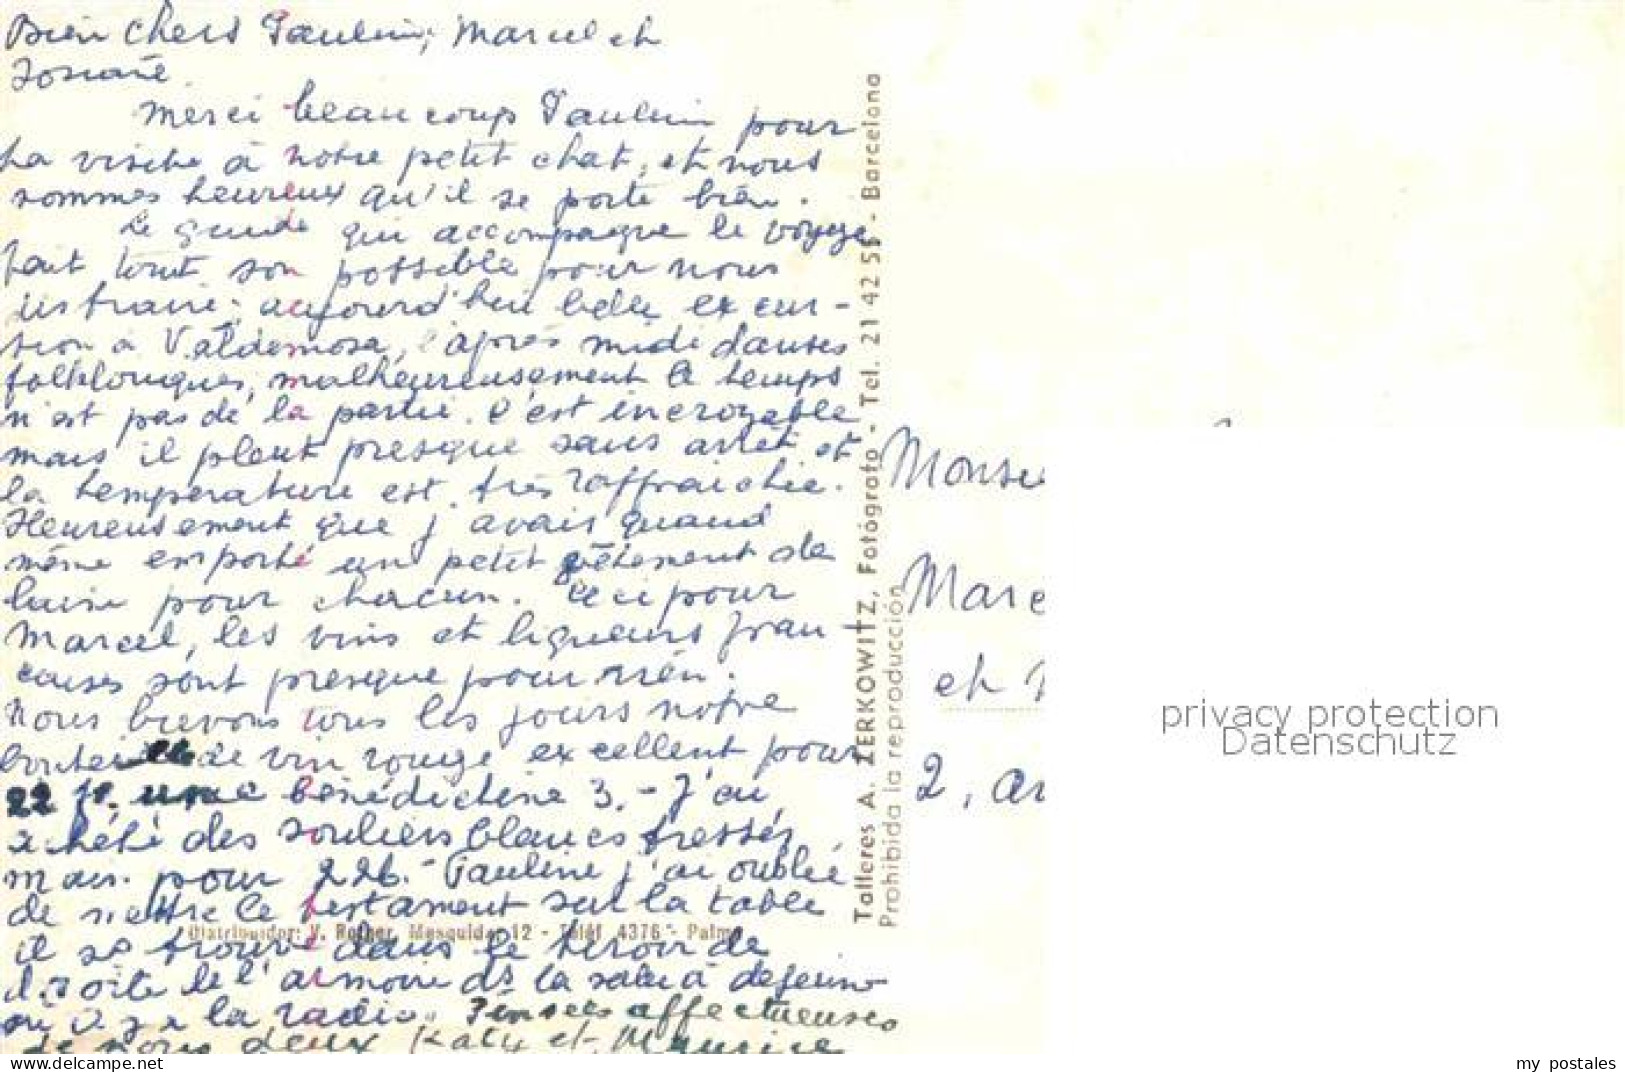 Bien chers Pauline, Marcel et
Josiane
Merci beaucoup Pauline pour
la visite à notre petit chat, et nous
sommes heureux qu'il se porte bien.
Le guide qui accompagne le voyage
fait tout son possible pour nous
distraire; aujourd'hui belle excur-
sion à Valdemosa, l'après midi danses
folkloriques, malheureusement le temps
n'est pas de la partie. C'est incroyable
mais il pleut presque sans arrêt et
la température est très raffraichie.
Heureusement que j'avais quand
même emporté un petit vêtement de
laine pour chacun. Ceci pour
Marcel, les vins et liqueurs fran-
caises sont presque pour rien.
Nous buvons tous les jours notre
bouteille de vin rouge excellent pour
22 fr. une bénédictine 3.- J'ai
acheté des souliers blancs tressés
main pour 226.- Pauline j'ai oublié
de mettre le testament sur la table
il se trouve dans le tiroir de
droite de l'armoire de la salle à déjeuner
où il y a la radio. Pensées affectueuses
de nous deux Katy et Maurice
Distribuidor: V. Rotger, Mesquida, 12 - Teléf. 4376 - Palma
Talleres A. ZERKOWITZ, Fotógrafo - Tel. 21 42 55 - Barcelona
Prohibida la reproducción
Monsie
Marc
et
2, av
privacy protection
Datenschutz
my postales